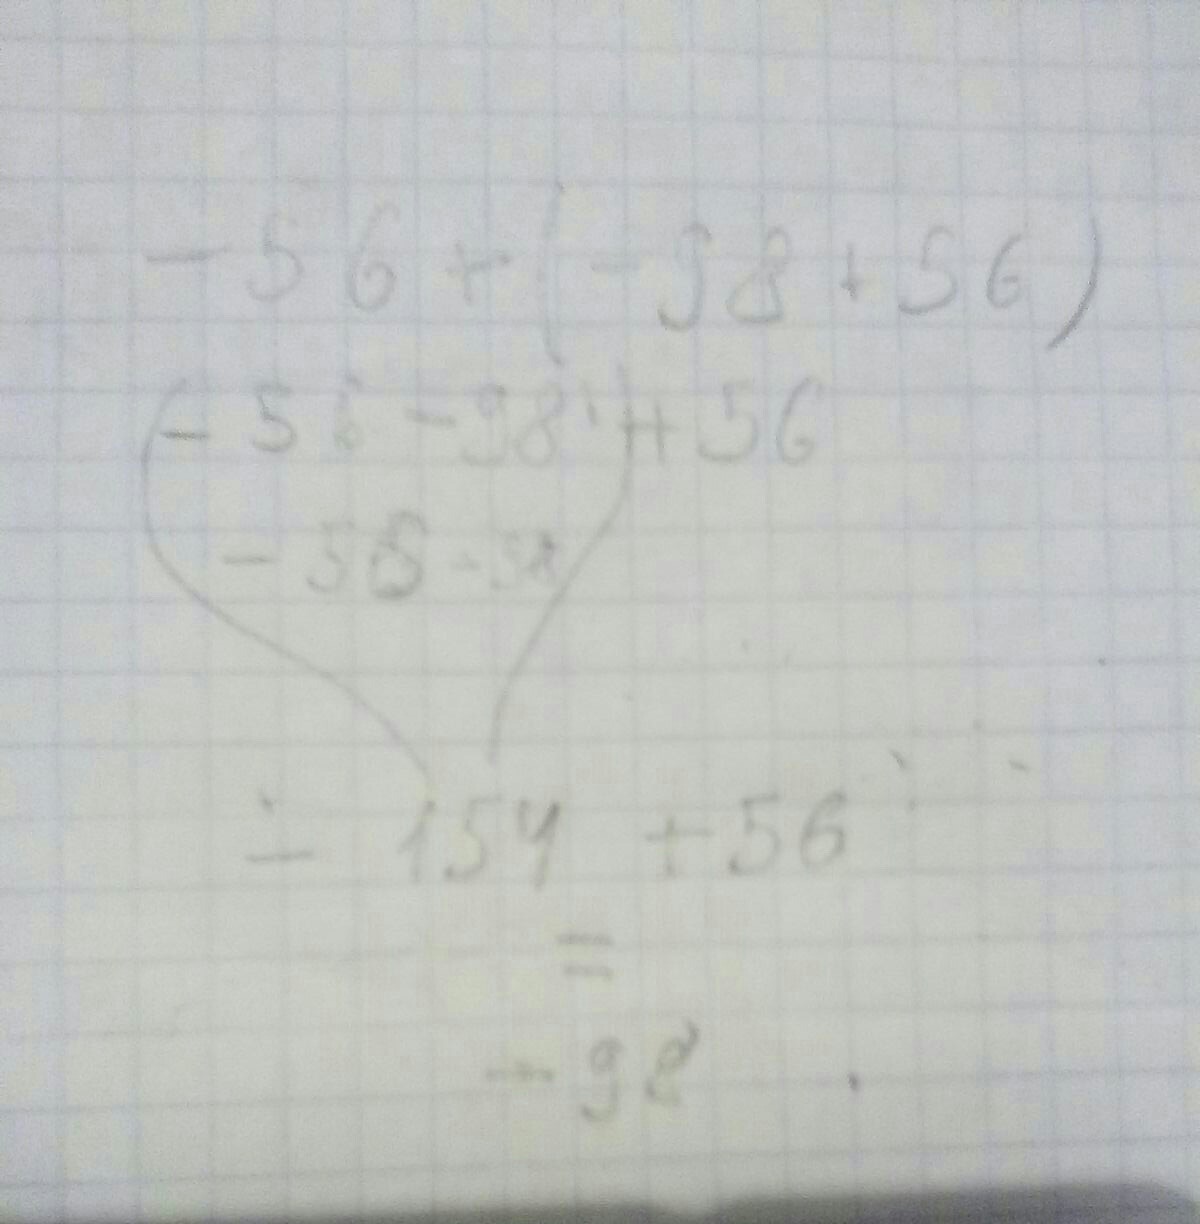 -56+(-98+56)
(-56-98)+56
-56-98
-154+56
=
-98